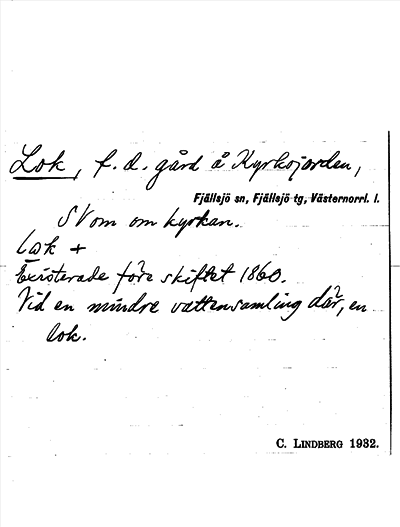 Lok, f. d. gård å Kyrkojorden,
Fjällsjö sn, Fjällsjö tg, Västernorrl. l.
SV om om kyrkan.
Lok +
Existerade före skiftet 1860.
Vid en mindre vattensamling där, en
lok.
C. LINDBERG 1932.